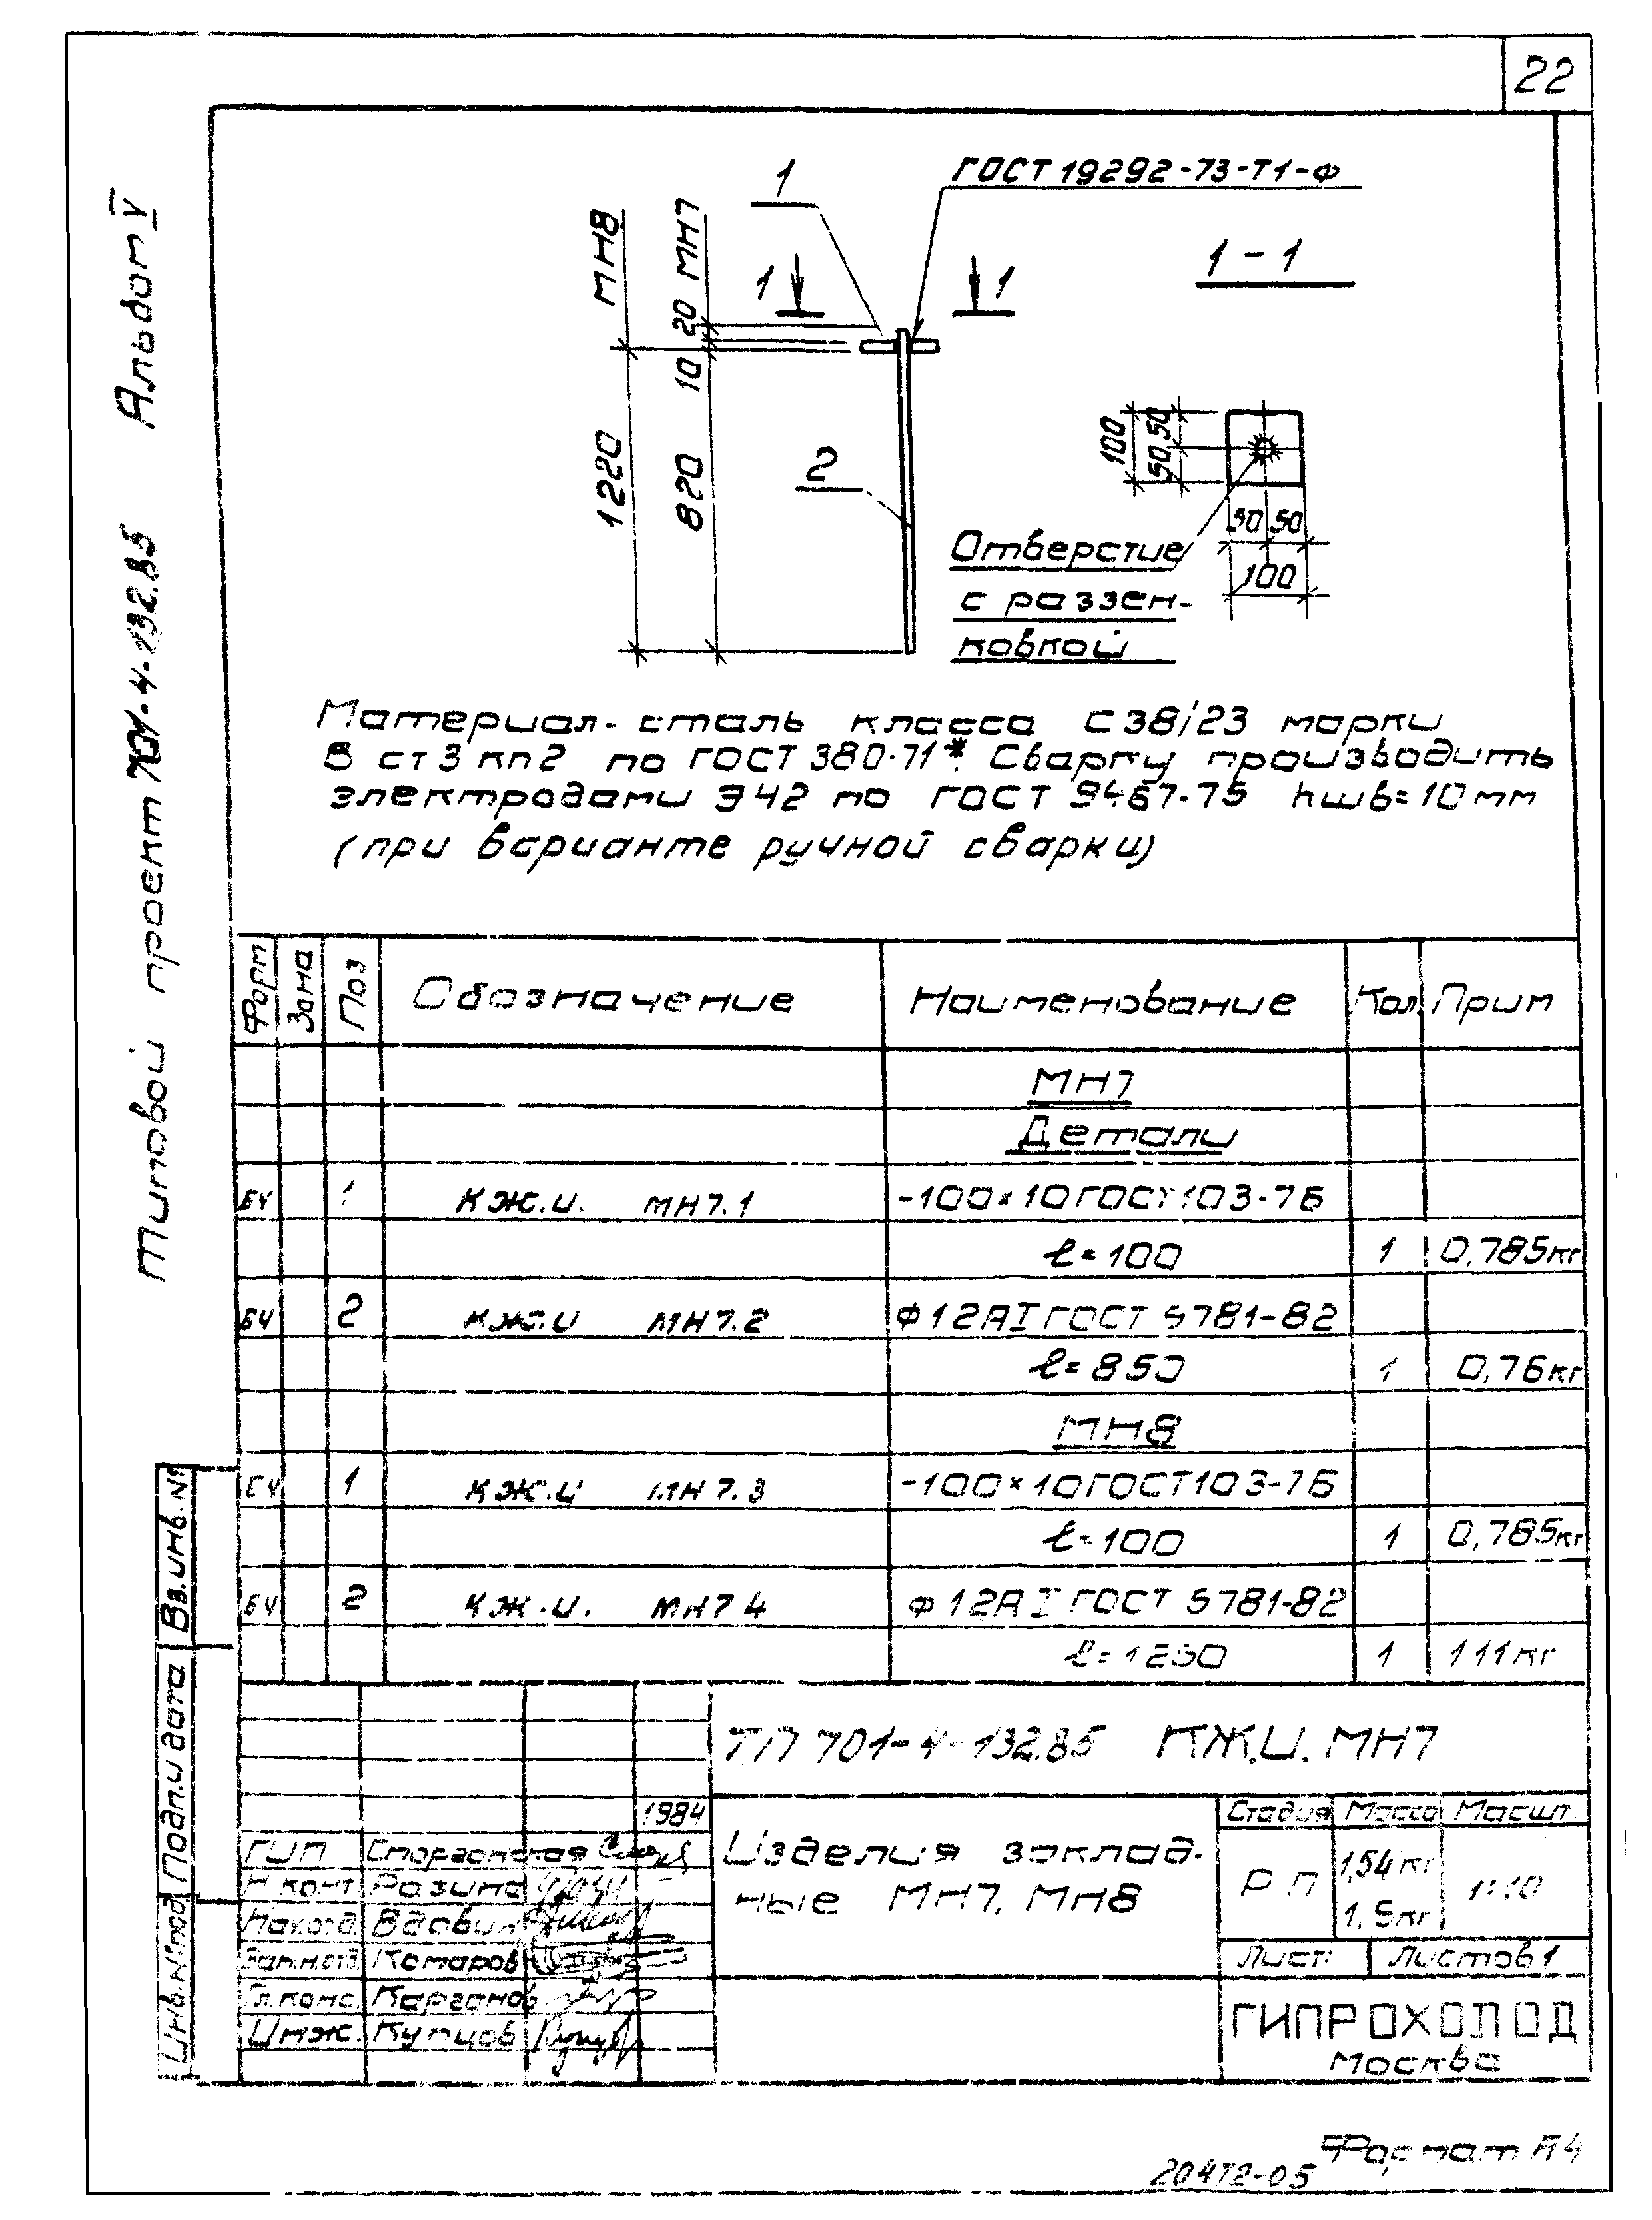 22
Альбом V
Типовой проект 701-4-132.85
1
ГОСТ 19292-73-Т1-Ф
МН8
МН7
1
1
1-1
20
10
1220
820
2
100
50
50
50
50
100
Отверстие
с раззен-
ковкой
Материал-сталь класса С38/23 марки
В ст3 кп2 по ГОСТ 380-71*. Сварку производить
электродами Э42 по ГОСТ 9467-75 hшв=10мм
(при варианте ручной сварки)
Форм Зона Поз Обозначение Наименование Кол. Прим
МН7
Детали
БЧ 1 КЖ.И. МН7.1 -100×10 ГОСТ 103-76
ℓ=100 1 0,785кг
БЧ 2 КЖ.И МН7.2 Ф12АI ГОСТ 5781-82
ℓ=850 1 0,76кг
МН8
БЧ 1 КЖ.И МН7.3 -100×10 ГОСТ 103-76
ℓ=100 1 0,785кг
БЧ 2 КЖ.И. МН7 4 Ф12АI ГОСТ 5781-82
ℓ=1250 1 111кг
Вз.инв.№
Подп.и дата
Инв.№подл
ТП 701-4-132.85 КЖ.И. МН7
1984
Изделия заклад-
ные МН7, МН8
Стадия Масса Масшт.
РП 1,54кг 1:10
1,5кг
Лист: Листов 1
ГИП
Н.конт Разина
Нач.отд Вдовин
Зам.н.отд Комаров
Гл.конс. Карганов
Инж. Купцов
ГИПРОХОЛОД
Москва
Формат А4
20472-05